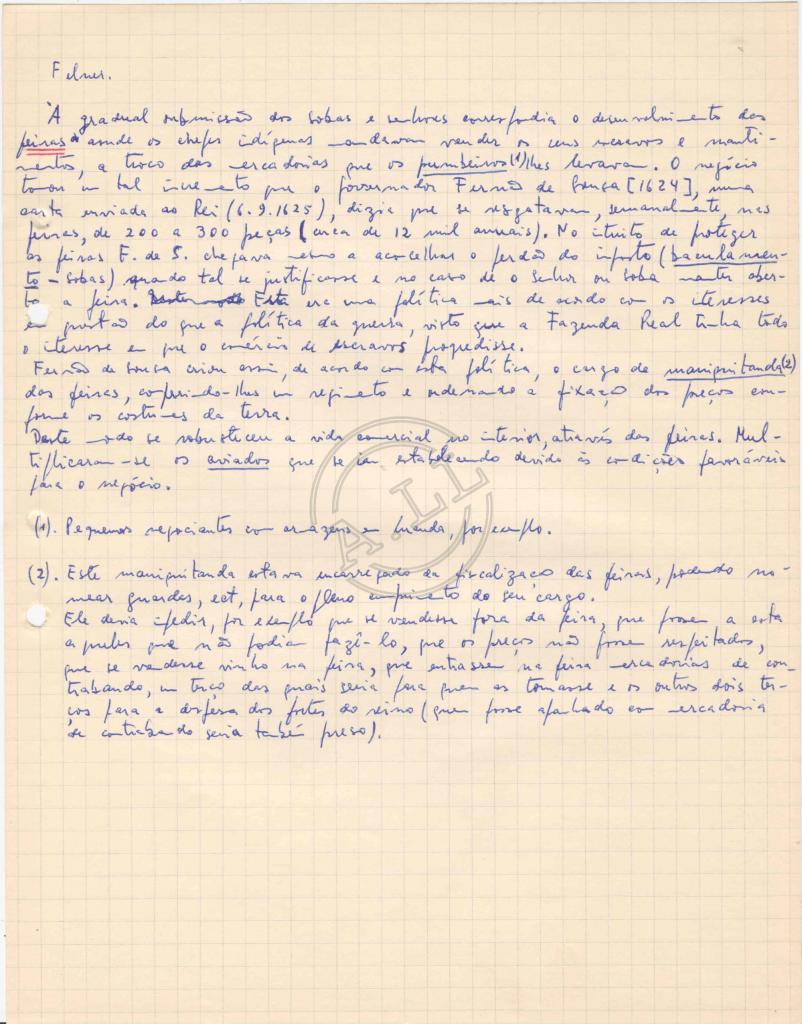 Felner.
À gradual submissão dos sobas e senhores correspondia o desenvolvimento das
feiras aonde os chefes indígenas mandavam vender os seus escravos e manti-
mentos, a troco das mercadorias que os pumbeiros (1) lhes levavam. O negócio
tomou um tal incremento que o governador Fernão de Sousa [1624], numa
carta enviada ao Rei (6.9.1625), dizia que se resgatavam, semanalmente, nas
feiras, de 200 a 300 peças (cerca de 12 mil anuais). No intuito de proteger
as feiras F. de S. chegava mesmo a aconselhar o perdão do imposto (baculamen-
to - sobas) quando tal se justificasse e no caso de o senhor ou soba manter aber-
ta a feira. Esta era uma política mais de acordo com os interesses
em questão do que a política da guerra, visto que a Fazenda Real tinha todo
o interesse em que o comércio de escravos progredisse.
Fernão de Sousa criou assim, de acordo com esta política, o cargo de maniquitanda (2)
das feiras, conferindo-lhes um regimento e ordenando a fixação dos preços con-
forme os costumes da terra.
Deste modo se robusteceu a vida comercial no interior, através das feiras. Mul-
tiplicaram-se os aviados que se iam estabelecendo devido às condições favoráveis
para o negócio.
(1). Pequenos negociantes com armazens em Luanda, por exemplo.
(2). Este maniquitanda estava encarregado da fiscalização das feiras, podendo no-
mear guardas, ect, para o pleno cumprimento do seu cargo.
Ele devia impedir, por exemplo que se vendesse fora da feira, que fossem a esta
aqueles que não podiam fazê-lo, que os preços não fossem respeitados,
que se vendesse vinho na feira, que entrassem na feira mercadorias de con-
trabando, um terço das quais seria para quem as tomasse e os outros dois ter-
ços para a defesa dos fortes do reino (quem fosse apanhado com mercadoria
de contrabando seria também preso).
A.LL